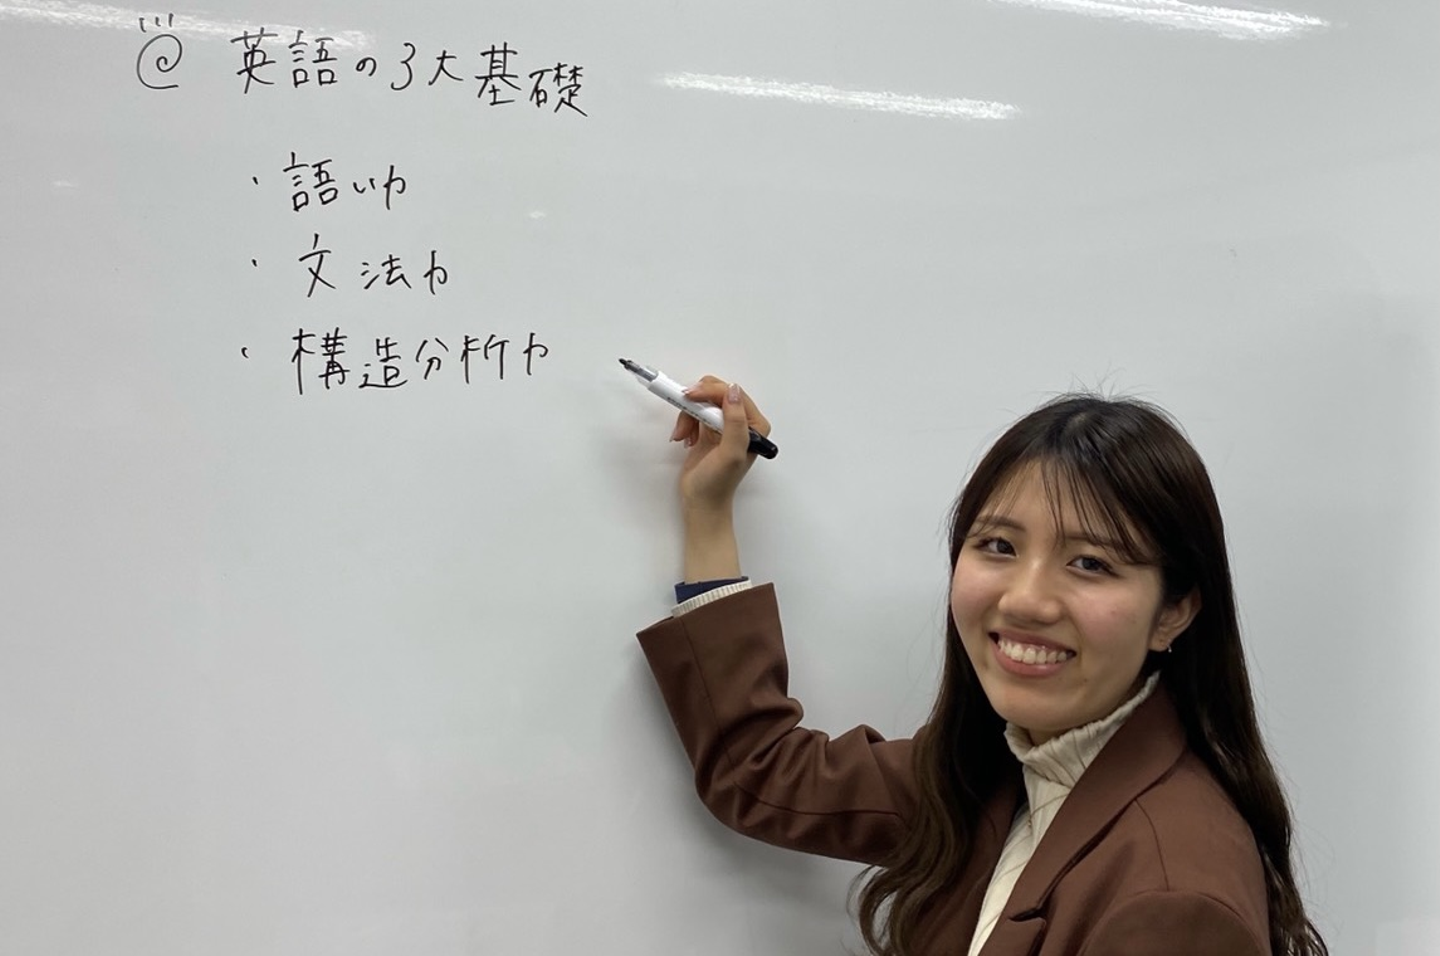 英語の3大基礎
・語い力
・文法力
・構造分析力